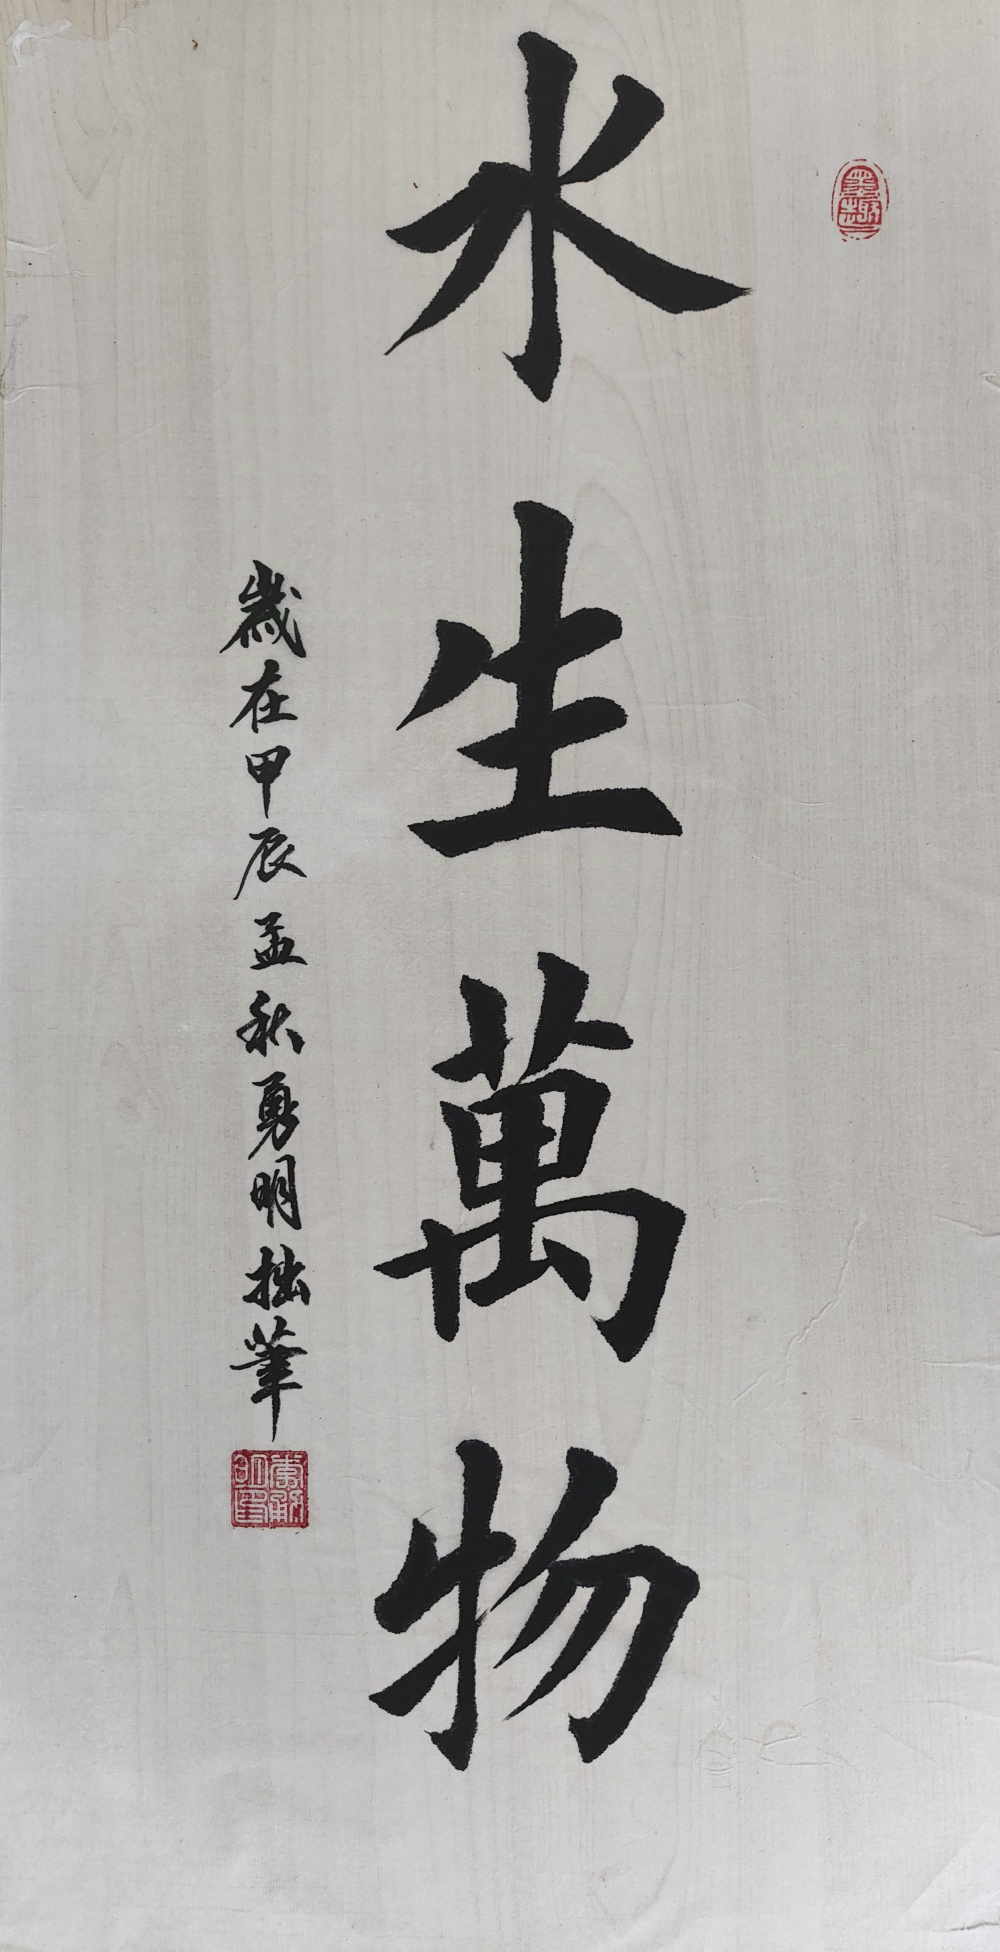 墨趣
水生萬物
歲在甲辰孟秋勇明拙筆